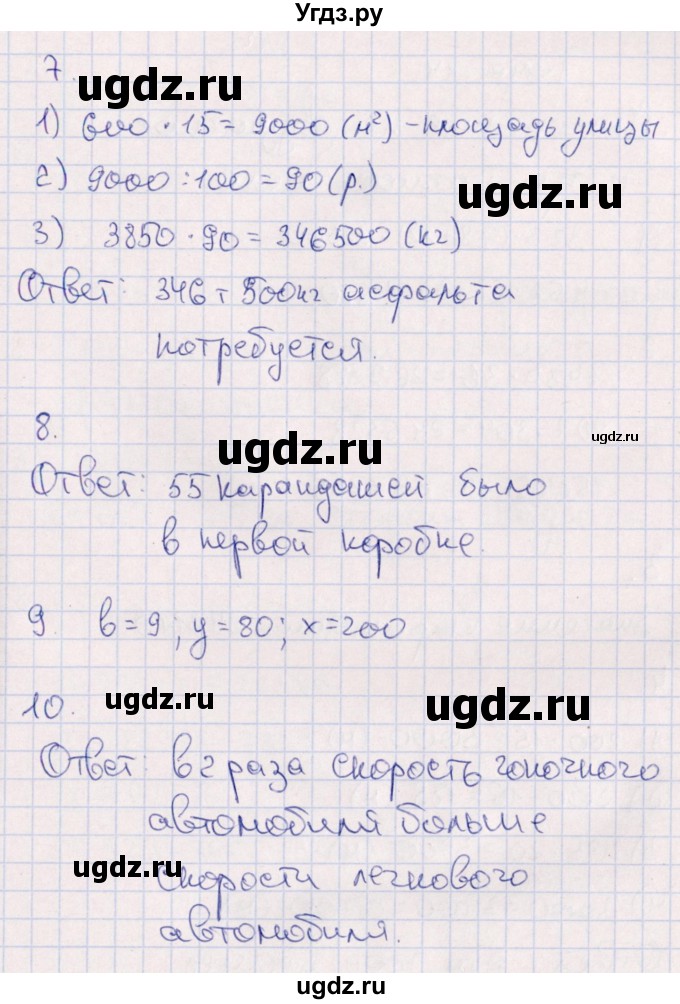 Угдз.ру
7.
ugdz.ru
1) 600 · 15 = 9000 (м²) – площадь улицы
2) 9000 : 100 = 90 (р.)
ugdz.ru
3) 3850 · 90 = 346500 (кг)
Ответ: 346 т 500 кг асфальта
потребуется.
8.
ugdz.ru
ugdz.ru
Ответ: 55 карандашей было
в первой коробке.
9. b = 9; y = 80; x = 200
10.
ugdz.ru
ugdz.ru
Ответ: в 2 раза скорость гоночного
автомобиля больше
ugdz.ru
скорости легкового
автомобиля.
ugdz.ru